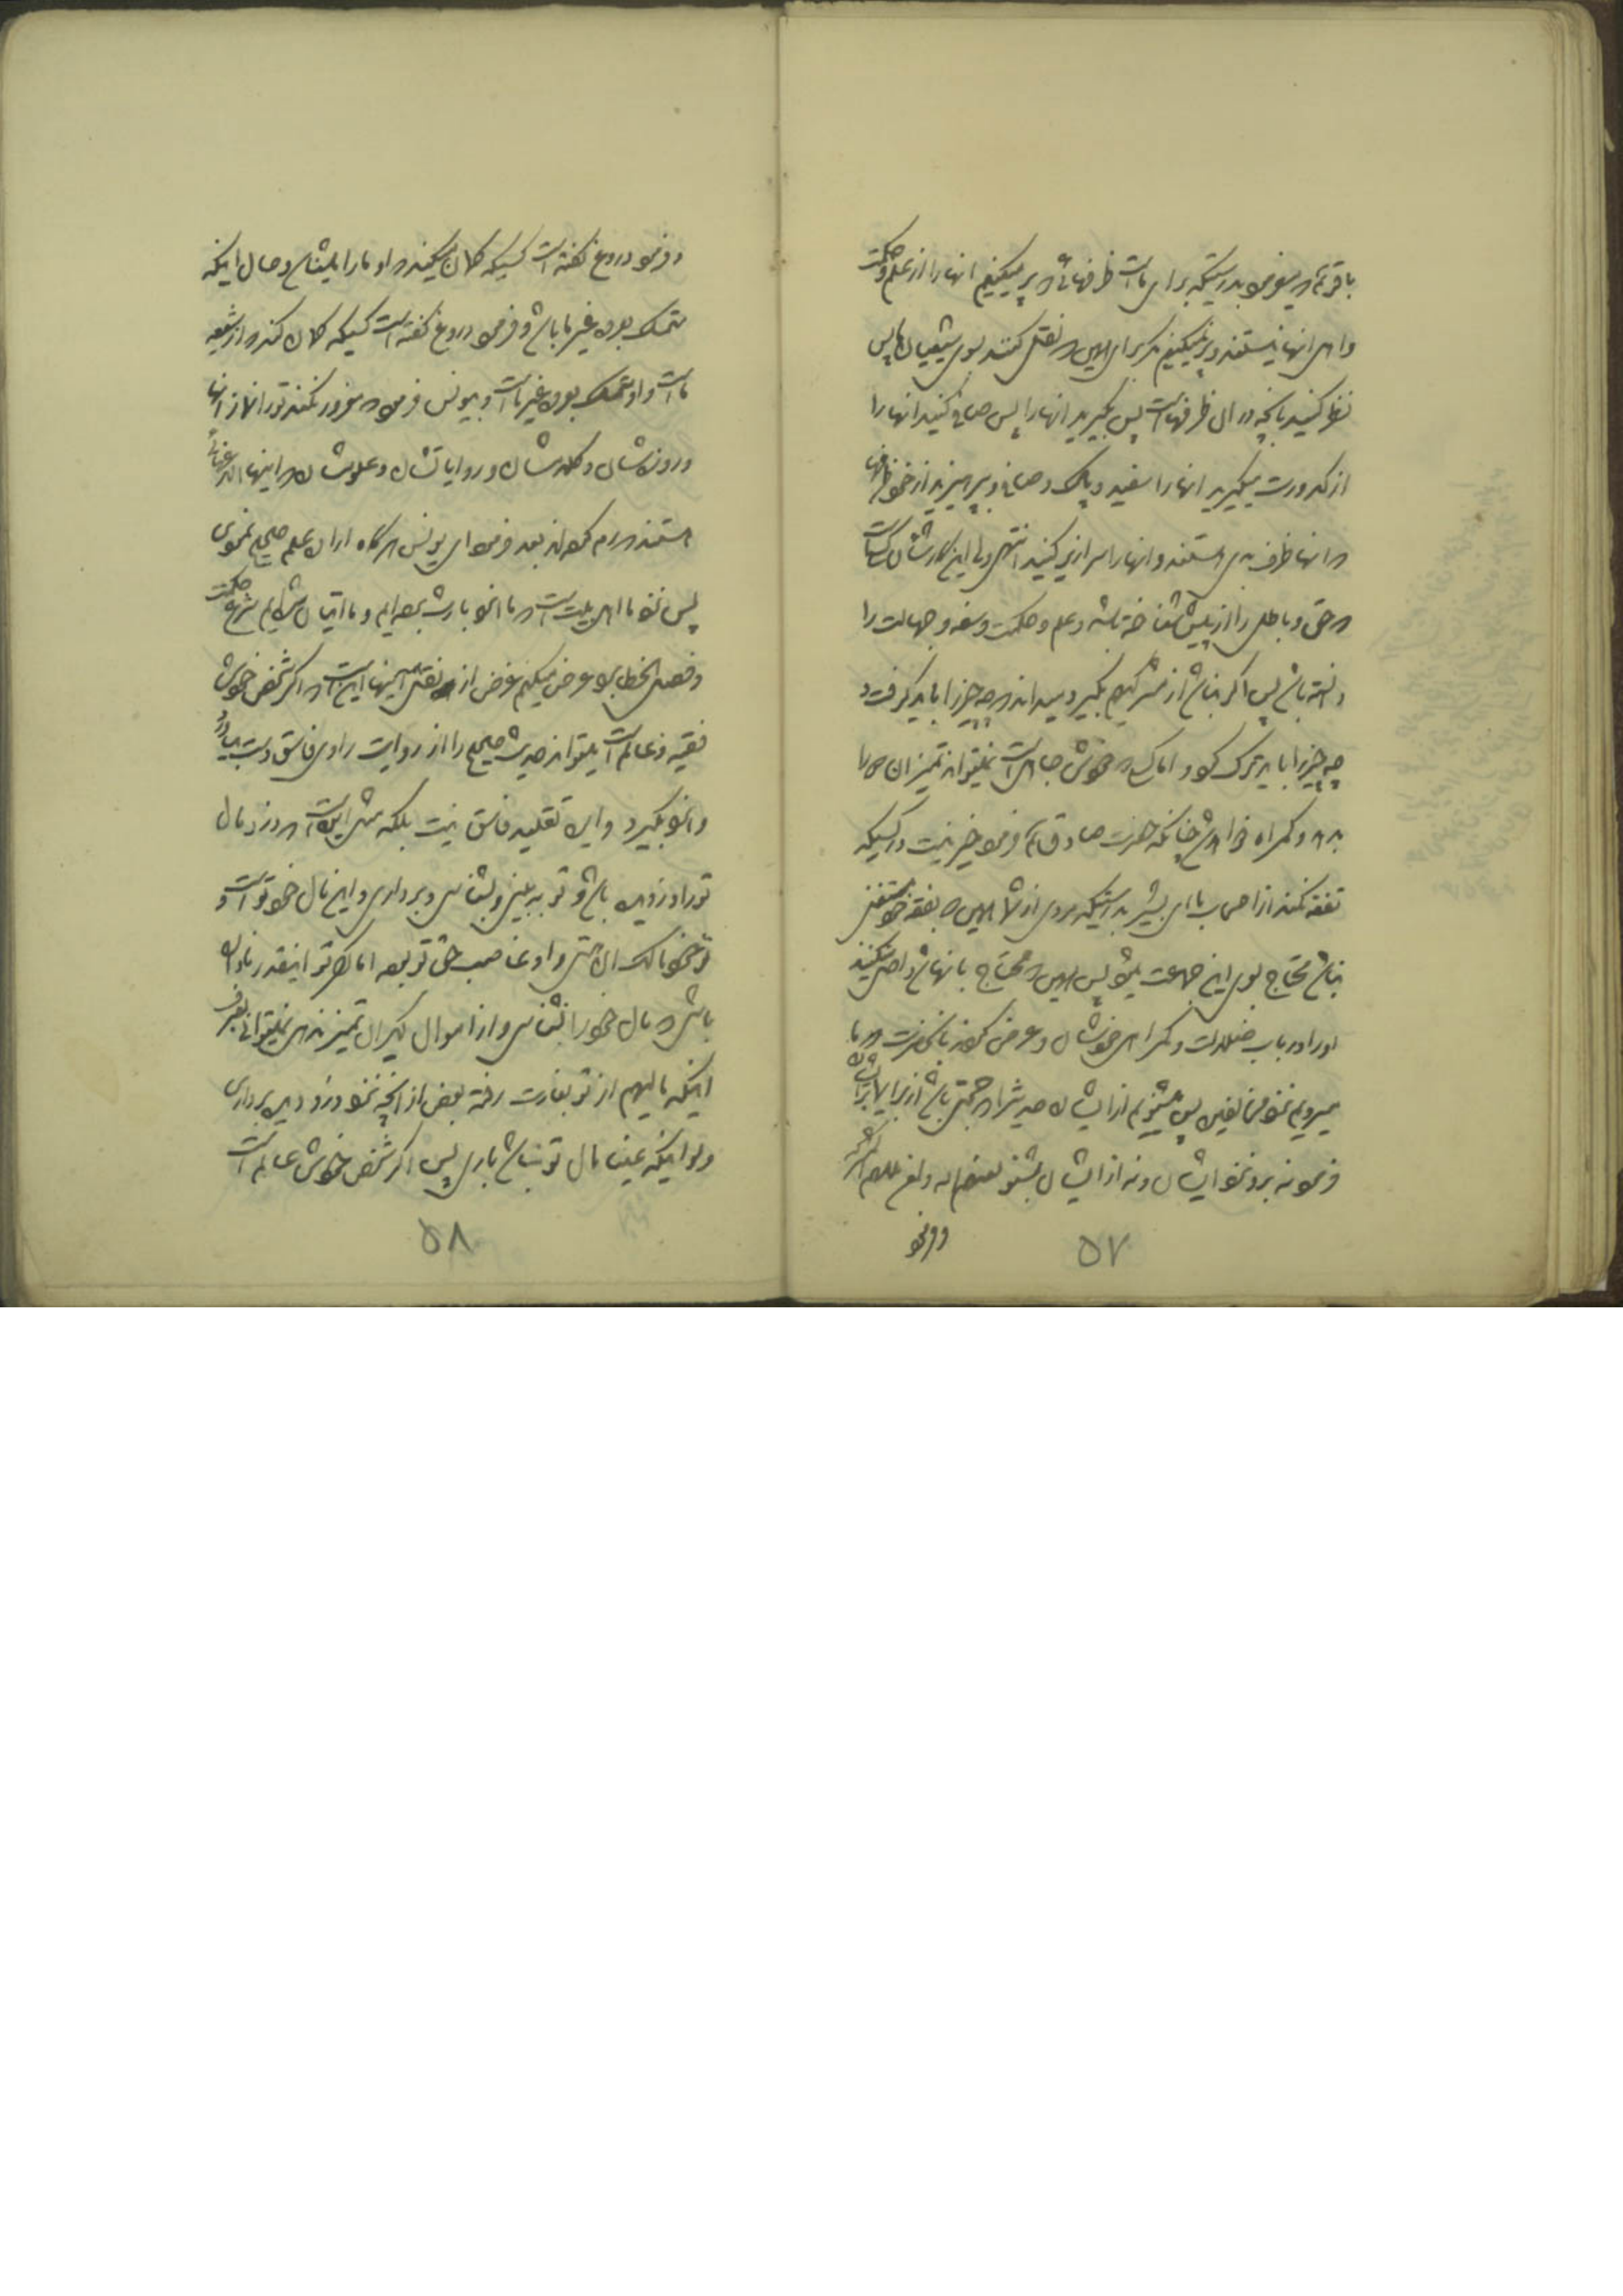 باقر ع که میفرمود بدرستیکه برای ماست ظرفهائی که پر میکنیم انها را از علم و حکمت
و اهل انها نیستند و پر نمیکنیم مگر برای اینکه نقل کنند بسوی شیعیان ما پس
نظر کنید بانچه در ان ظرفهاست پس بگیرید انها را پس صاف کنید انها را
از کدورت میگیرید انها را سفید و پاک و صاف و بپرهیزید از خود ظرفها
که انها ظرف بدی هستند و انها را سرازیر کنید انتهی ولی این کار شان کسیست
که حق و باطل را از پیش شناخته باشد و علم و حکمت و سفه و جهالت را
دانسته باشد پس اگر بناشد از مشرکی هم بگیرد میداند که چه چیز را باید گرفت و
چه چیز را باید ترک کرد و اما کسیکه خودش جاهل است نمیتواند تمیز ان ها را
بدهد و گمراه خواهد شد چنانکه حضرت صادق ع فرمود خیر نیست در کسیکه
تفقه نکند از اصحاب ما ای بشیر بدرستیکه مردی از شما همینکه بفقه خود مستغنی
نباشد محتاج بسوی این جماعت میشود پس همینکه محتاج بانها شد داخل میکنند
او را در باب ضلالت و گمراهی خودشان و عرض کردند بانحضرت که ما
میرویم نزد مخالفین پس میشنویم از ایشان حدیثی را که حجتی باشد از برای ما بر ایشان
فرمود نه برو نزد ایشان و نه از ایشان بشنو لعنهم الله و لعن مللهم المشرکه
و فرمود
۵۷
و فرمود دروغ گفته است کسیکه گمان میکند که او ما را میشناسد و حال اینکه
متمسک بعروه غیر ما باشد و فرمود دروغ گفته است کسیکه گمان کند که از شیعه
ماست و او متمسک بعروه غیر ماست و بیونس فرمود که مغرور نکند تو را نماز انها
و روزه شان و کلامشان و روایاتشان و علومشان که اینها الاغهائی
هستند که رم کرده اند بعد فرمود ای یونس هرگاه اراده علم صحیح نمودی
پس نزد ما اهل بیت است که ما انرا بارث برده ایم و بما اتیان شد شرع حکمت
و فصل الخطاب عرض میکنم غرض از نقل اینها این است که اگر شخص خودش
فقیه و عالم است میتواند حدیث صحیح را از روایت راوی فاسق بدست بیاورد
و انرا بگیرد و این تقلید فاسق نیست بلکه مثل اینست که دزد مال
تو را دزدیده باشد و تو به بینی و بشناسی و برداری و این مال خود تو است و
تو خود مالک ان هستی و او غاصب حق تو بوده اما اگر تو اینقدر نادان
باشی که مال خود را نشناسی و از اموال دیگران تمیز ندهی نمیتوانی بصرف
اینکه مالی هم از تو بغارت رفته بعض از انچه نزد دزد دیدی برداری
ولو اینکه عین مال تو نباشد باری پس اگر شخص خودش عالم است
۵۸